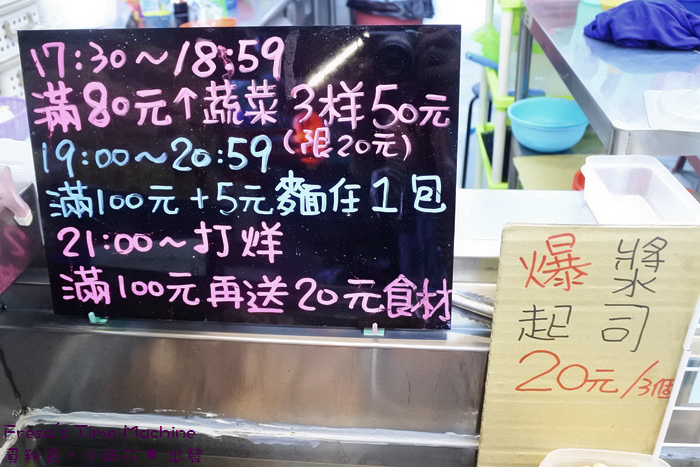 17:30～18:59
滿80元↑蔬菜3样50元
(限20元)
19:00～20:59
滿100元+5元麵任1包
21:00～打烊
滿100元再送20元食材
爆漿
起司
20元/3個
Fresa's Time Machine